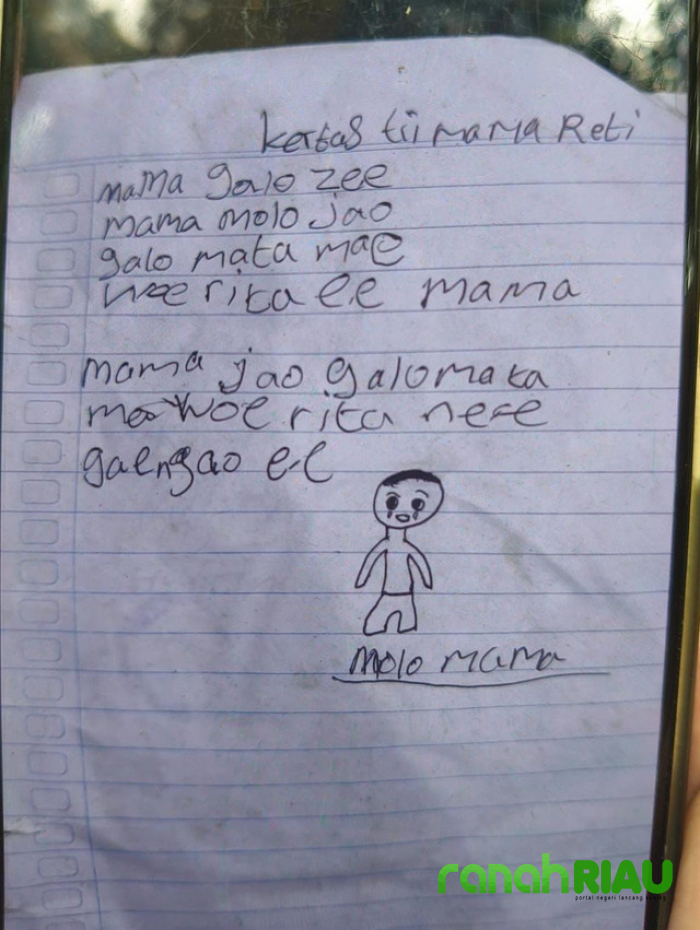 kertas tii mama Reti
mama galo zee
mama molo jao
galo mata mae
woe rita ee mama
mama jao galo mata
mae woe rita ne ee
gae ngao ee
molo mama
ranahRIAU
portal negeri lancang kuning